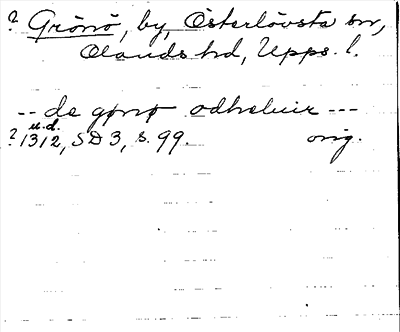 ? Grönö, by, Österlövsta sn,
Olands hd, Upps. l.
-- de gønø odhelwir ---
u.d.
? 1312, SD 3, s. 99. orig.